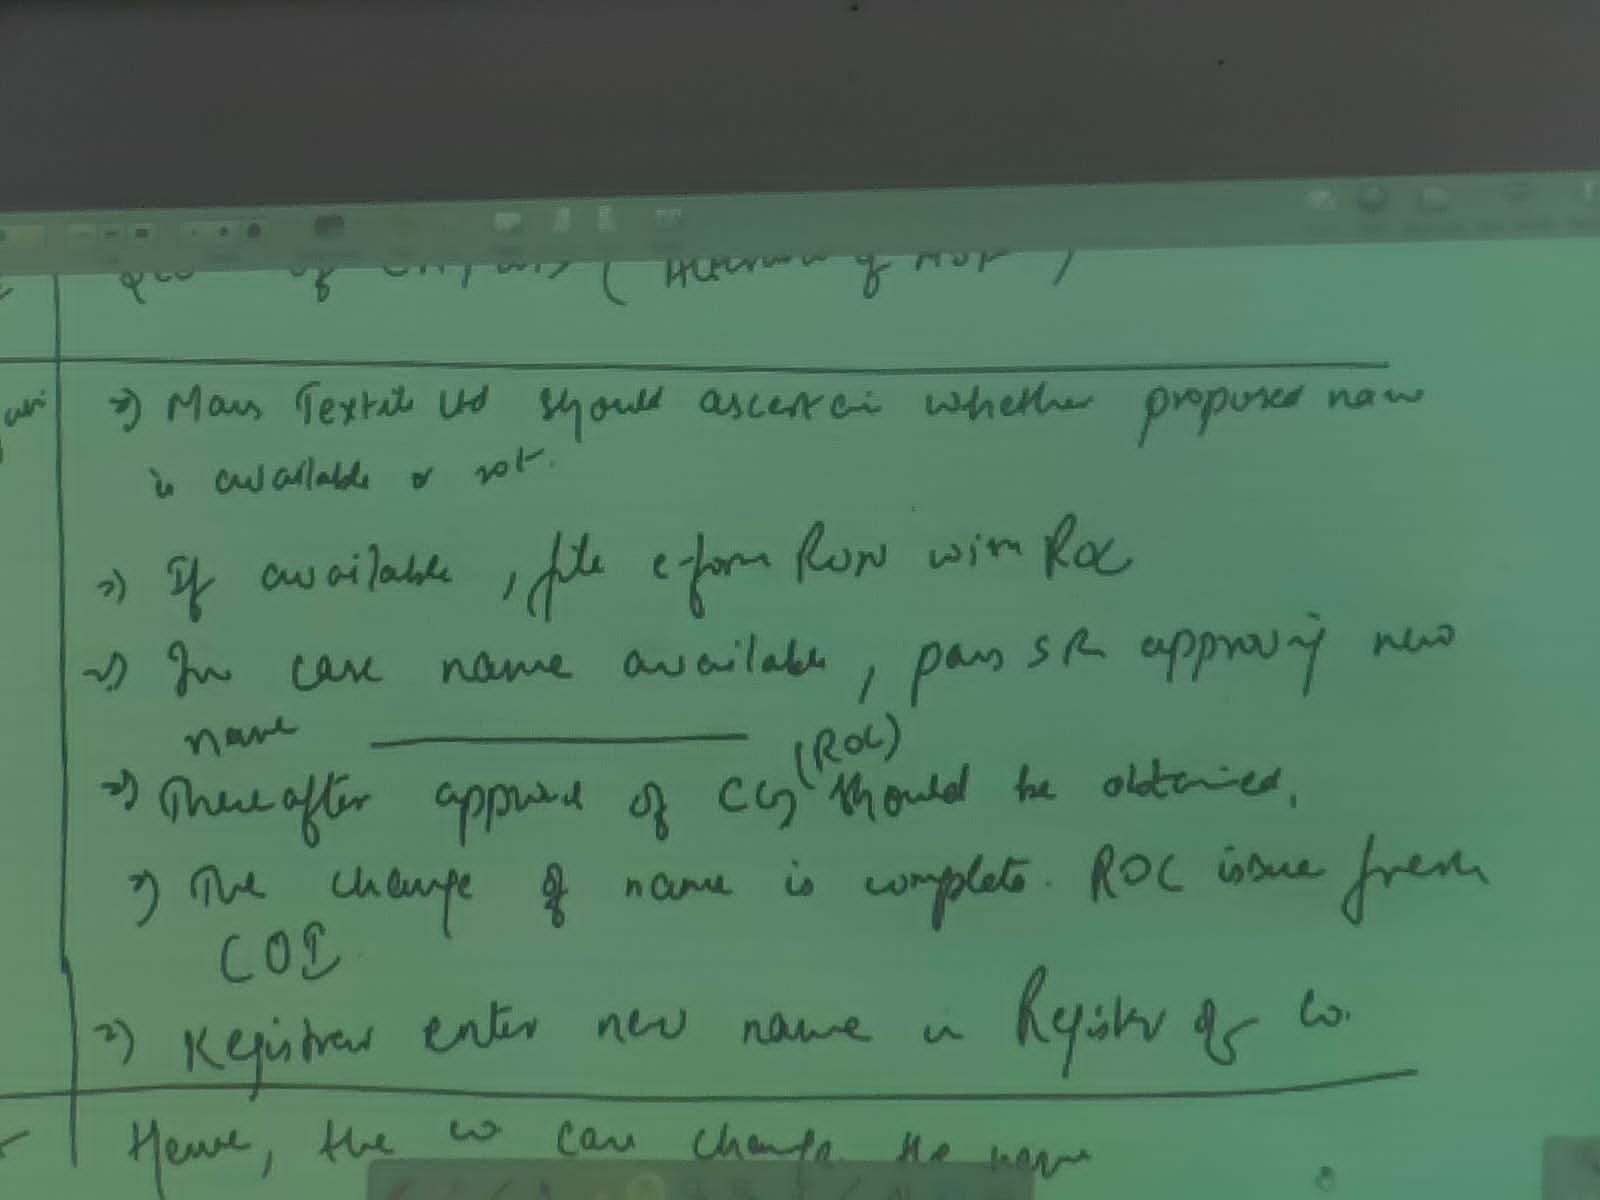 of (Alteration of
=) Mars Textile Ltd should ascertain whether proposed name
is available or not.
=) If available, file e-form RUN with ROC
=) In case name available, pass SR approving new
name
(ROC)
=) Thereafter approval of CG should be obtained.
=) The change of name is complete. ROC issue fresh
COI
=) Registrar enter new name in Register of Co.
Hence, the co can change the name